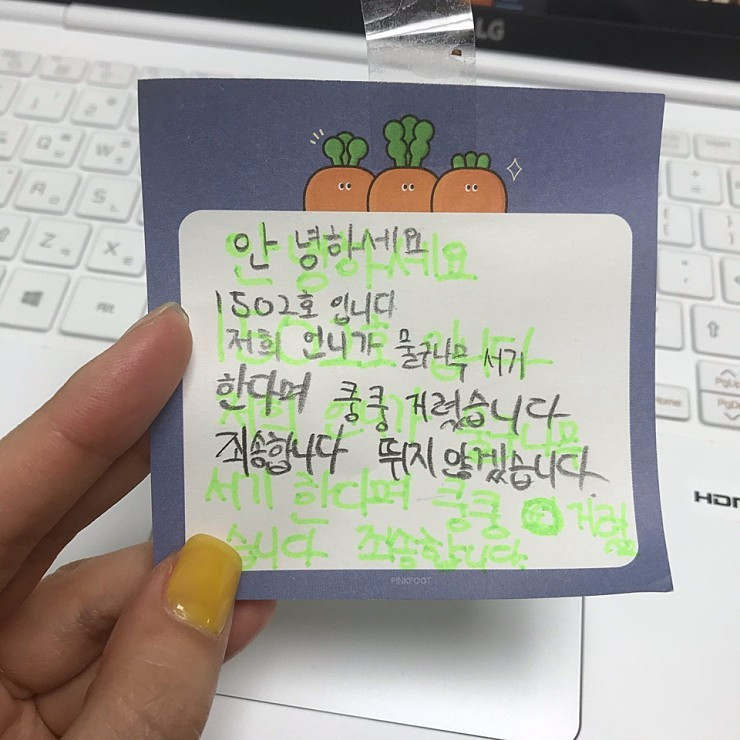 LG
안녕하세요
1502호 입니다
저희 언니가 물구나무 서기
한다며 쿵쿵 거렸습니다
죄송합니다 뛰지 않겠습니다.
안녕하세요
1502호 입니다
저희 언니가 물구나무
서기 한다며 쿵쿵 거렸
습니다 죄송합니다
PINKFOOT
Q
W
A
S
Z
X
Alt
Home
PgUp
PgDn